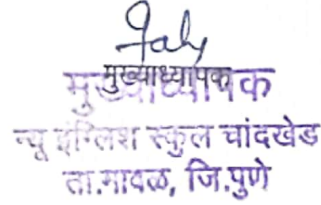 मुख्याध्यापक
मुख्याध्यापक
न्यू इंग्लिश स्कुल चांदखेड
ता.मावळ, जि.पुणे